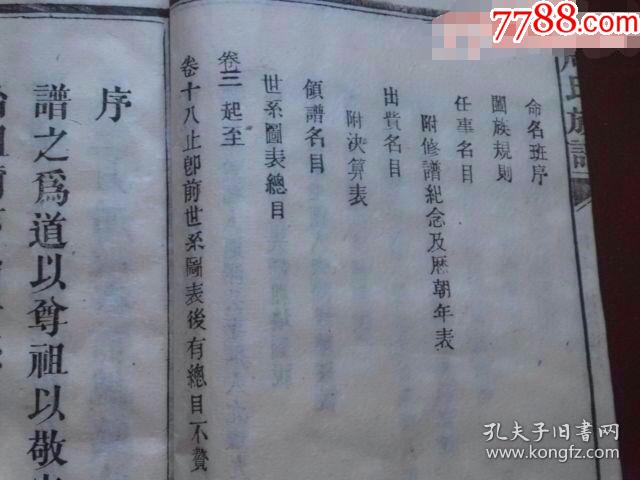 7788.com
氏族譜
命名班序
闔族規則
任事名目
附修譜紀念及歷朝年表
出費名目
附決算表
領譜名目
世系圖表總目
卷三 起至
卷十八止卽前世系圖表後有總目不贅
序
譜之爲道以尊祖以敬
孔夫子旧书网